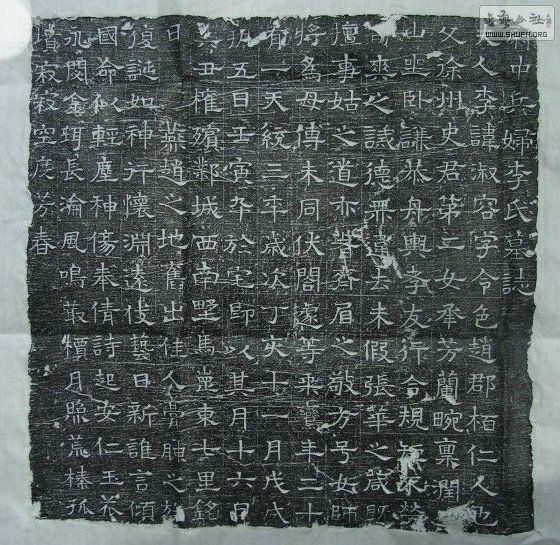 中兵婦李氏墓誌
夫人李諱淑容字令色趙郡栢仁人也
父徐州史君第二女承芳蘭畹稟潤
山坐卧謙恭舟輿孝友行合規矩
爽之誡德無違去未假張華之箴既
擅事姑之道亦齊眉之敬方号女師
將為母傅未同伏閤遽等来年二十
有一天統三年歲次丁亥十一月戊戌
朔五日壬寅卒於宅即以其月十六日
癸丑權殯鄴城西南野馬崗東七里銘
曰燕趙之地舊出佳人膏腴之族
復誕如神行懷淵遠伎藝日新誰言傾
國命似輕塵神傷奉倩詩起安仁玉
永閟金珥長淪風鳴叢檟月照荒榛孤
墳寂寂空度芳春
www.SHUFA.ORG